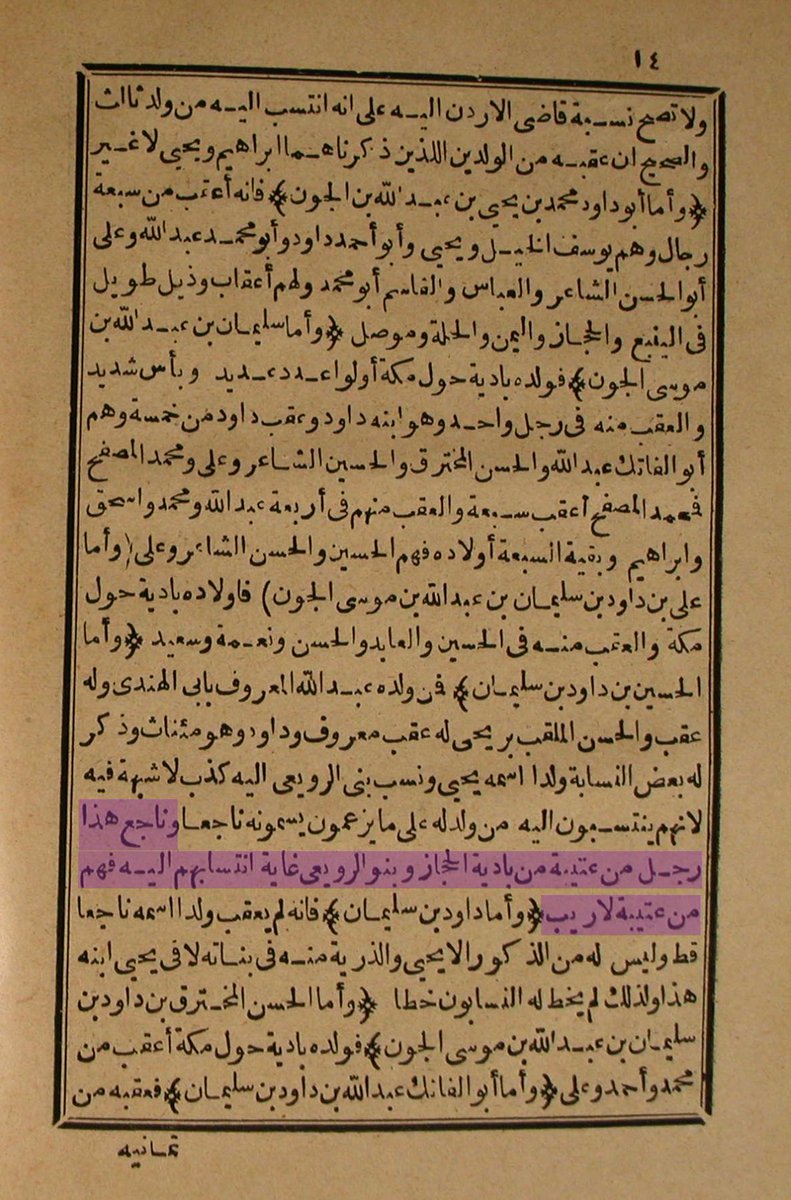 ١٤
ولا تصح نسبة قاضى الاردن اليه على انه انتسب اليه من ولد ثالث
والصحيح ان عقبه من الولدين اللذين ذكرناهما ابراهيم ويحيى لا غير
﴿وأما أبو داود محمد بن يحيى بن عبد الله بن الجون﴾ فانه أعقب من سبعة
رجال وهم يوسف الخيل ويحيى وأبو أحمد داود وأبو محمد عبد الله وعلى
أبو الحسن الشاعر والعباس والقاسم أبو محمد ولهم أعقاب وذيل طويل
فى الينبع والحجاز واليمن والحلة وموصل ﴿وأما سليمان بن عبد الله بن
موسى الجون﴾ فولده بادية حول مكة أولو اعدد عديد وبأس شديد
والعقب منه فى رجل واحد وهو ابنه داود وعقب داود من خمسة وهم
أبو الفاتك عبد الله والحسن المخترق والحسين الشاعر وعلى ومحمد المصفح
فمحمد المصفح أعقب سبعة والعقب منهم فى أربعة عبد الله ومحمد واسحق
وابراهيم وبقية السبعة أولاده فهم الحسين والحسن الشاعر وعلى (وأما
على بن داود بن سليمان بن عبد الله بن موسى الجون) فاولاده بادية حول
مكة والعقب منه فى الحسين والعابد والحسن ونعمة وسعيد ﴿وأما
الحسين بن داود بن سليمان﴾ فمن ولده عبد الله المعروف بابى الهندى وله
عقب والحسن الملقب بر يحيى له عقب معروف وداود وهو مئناث وذكر
له بعض النسابة ولدا اسمه يحيى ونسب بنى الرويعى اليه كذب لا شبهة فيه
لانهم ينتسبون اليه من ولد له على ما يزعمون يسمونه ناجعا وناجع هذا
رجل من عتيبة من بادية الحجاز وبنو الرويعى غاية انتسابهم اليه فهم
من عتيبة لا ريب ﴿وأما داود بن سليمان﴾ فانه لم يعقب ولدا اسمه ناجعا
قط وليس له من الذكور الا يحيى والذرية منه فى بناته لا فى يحيى ابنه
هذا ولذلك لم يخط له النسابون خطا ﴿وأما الحسن المخترق بن داود بن
سليمان بن عبد الله بن موسى الجون﴾ فولده بادية حول مكة أعقب من
محمد وأحمد وعلى ﴿وأما أبو الفاتك عبد الله بن داود بن سليمان﴾ فعقبه من
ثمانيه